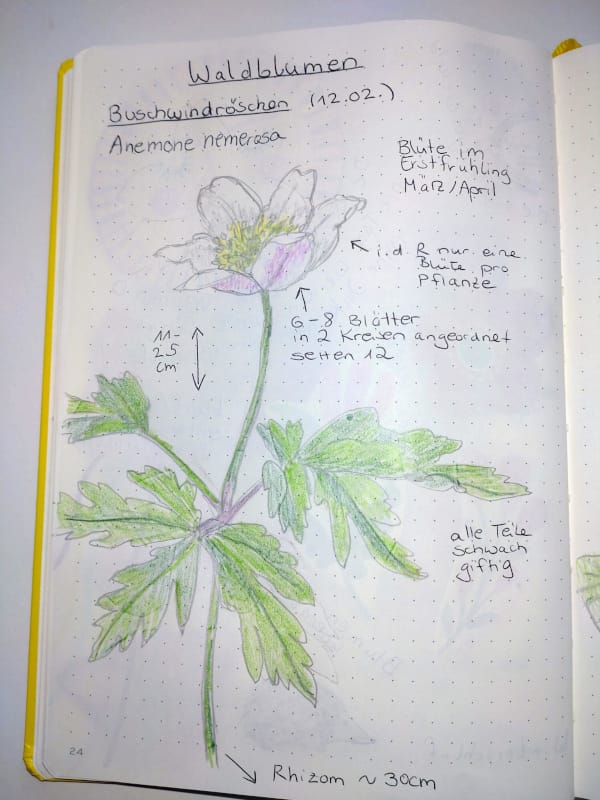 Waldblumen
Buschwindröschen (12.02.)
Anemone nemerosa
Blüte im
Erstfrühling
März/April
i.d.R nur eine
Blüte pro
Pflanze
6-8 Blätter
in 2 Kreisen angeordnet
selten 12
11-
25
cm
alle Teile
schwach
giftig
24
Rhizom ~ 30cm